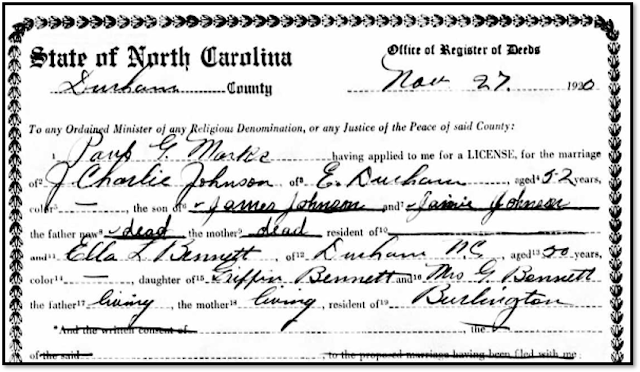 State of North Carolina Office of Register of Deeds
Durham County Nov 27 1920
To any Ordained Minister of any Religious Denomination, or any Justice of the Peace of said County:
1 G. having applied to me for a LICENSE, for the marriage
of2 J Charlie Johnson of3 E. Durham aged4 52 years,
color5 — , the son of6 James Johnson and7 Johnson
the father now8 dead the mother9 dead resident of10
and11 Ella L Bennett of12 Durham N.C. aged13 years,
color14 — , daughter of15 Griffin Bennett and16 Mrs G. Bennett
the father17 living , the mother18 living , resident of19 Burlington
*And the written consent of , the
of the said , to the proposed marriage having been filed with me